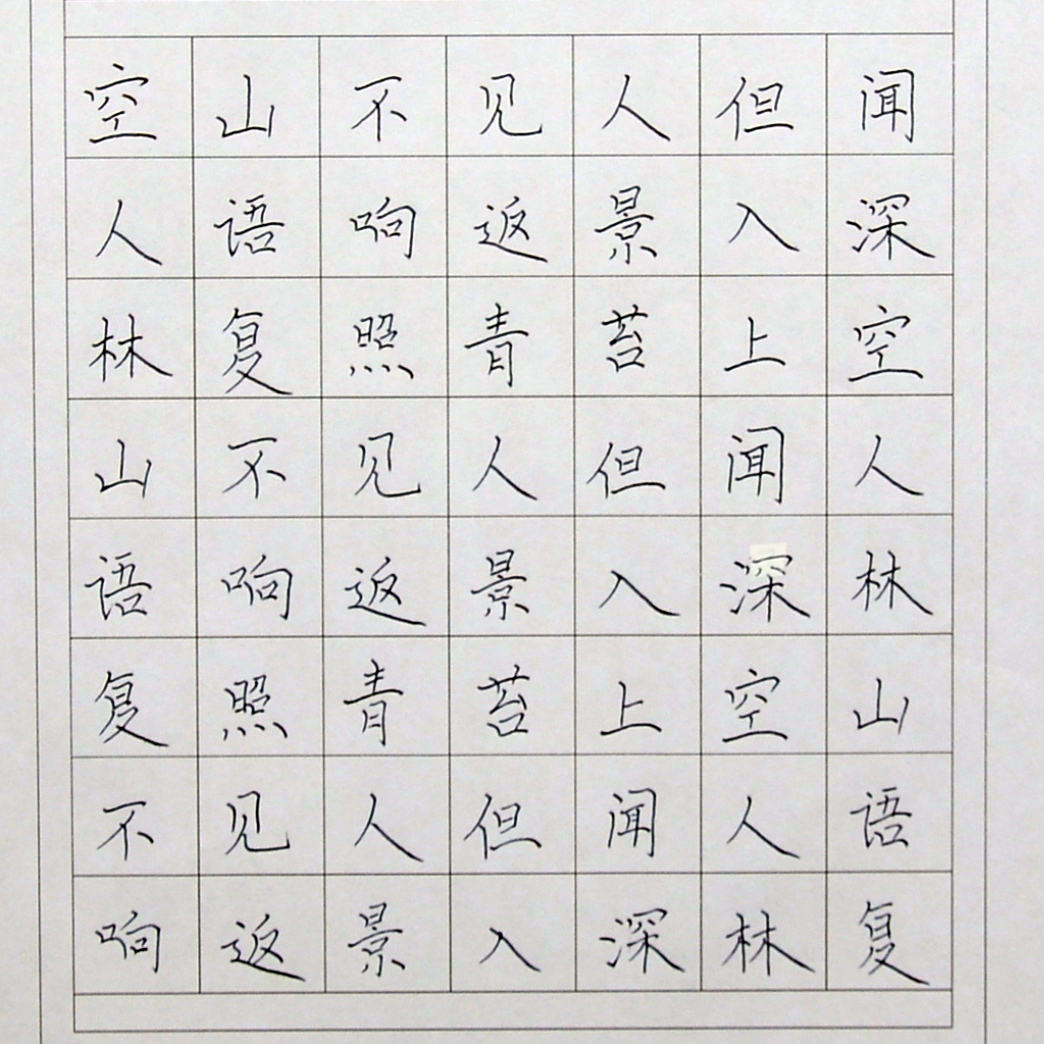 空山不见人但闻
人语响返景入深
林复照青苔上空
山不见人但闻人
语响返景入深林
复照青苔上空山
不见人但闻人语
响返景入深林复